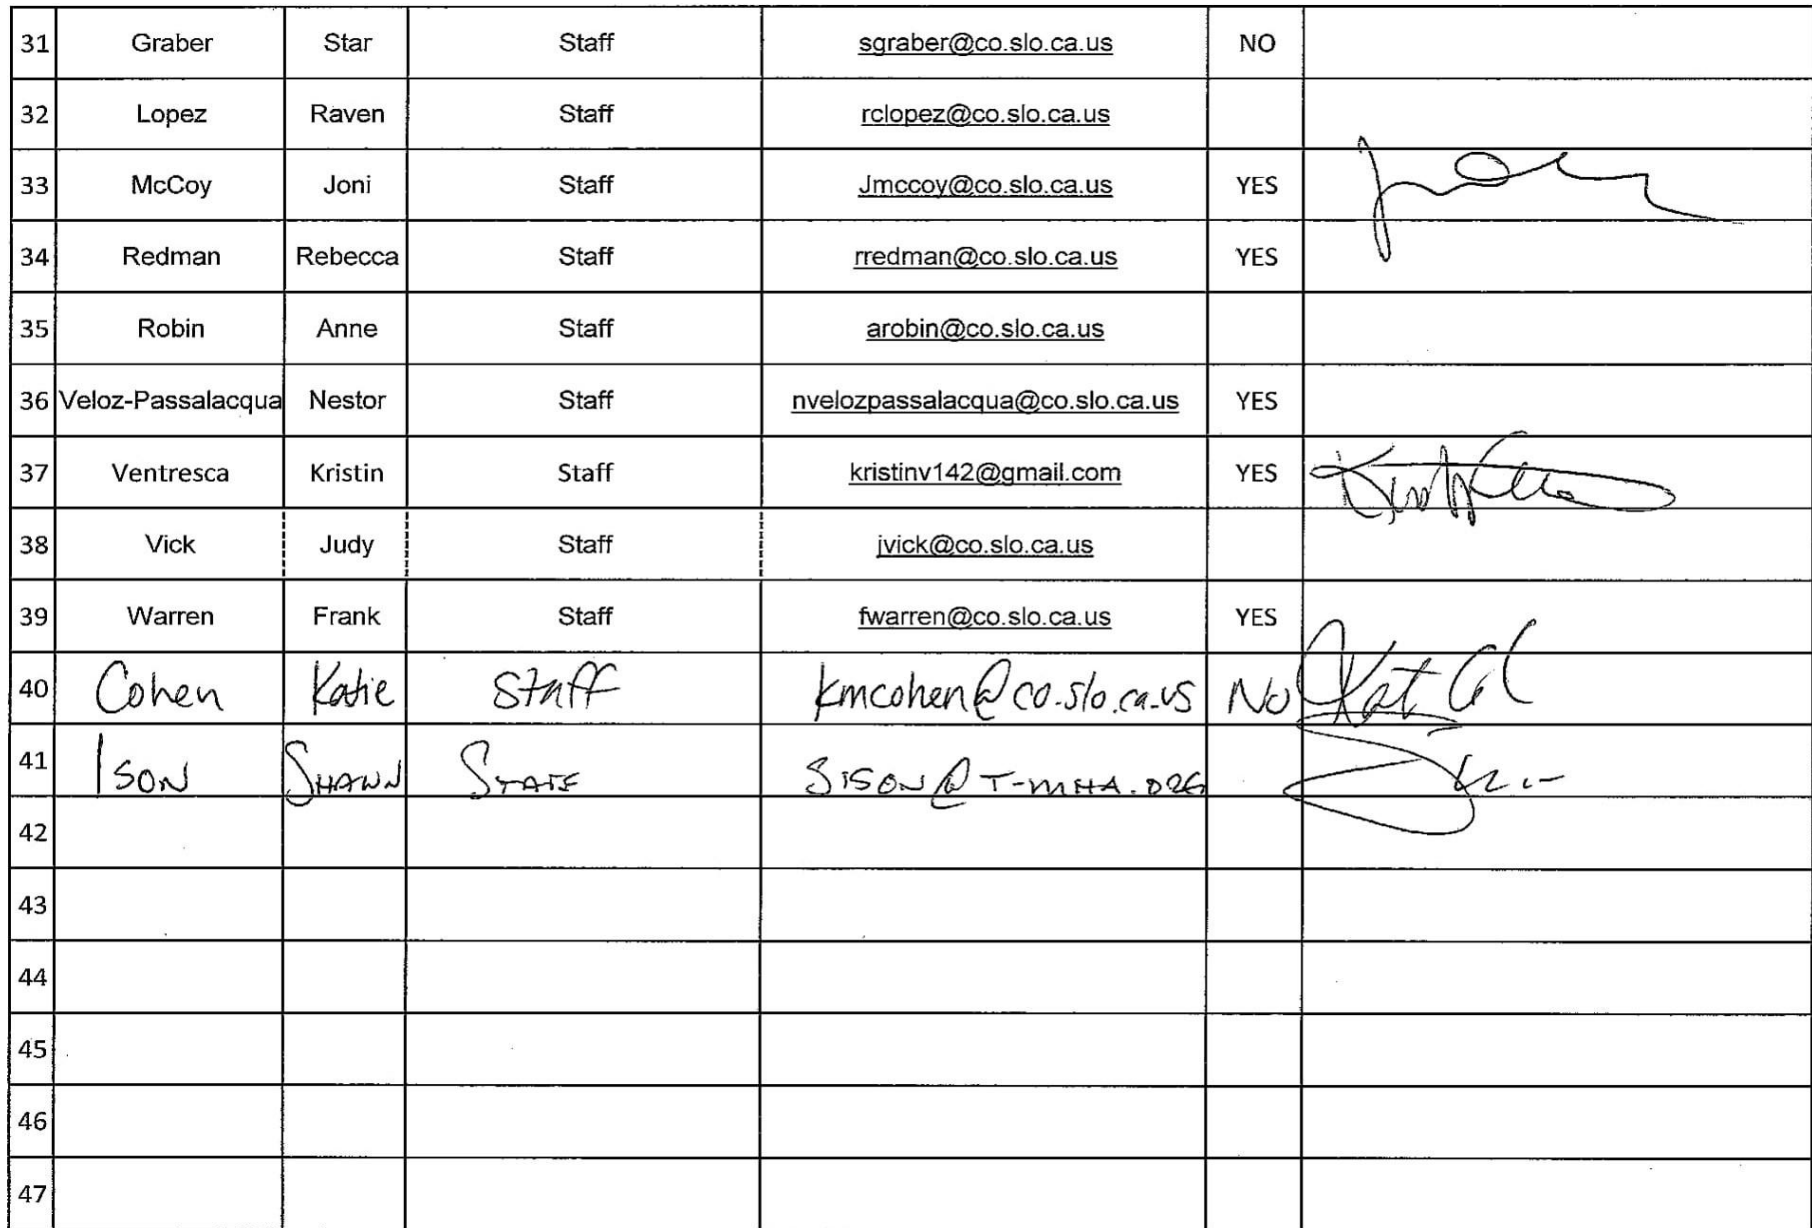 31 Graber Star Staff sgraber@co.slo.ca.us NO
32 Lopez Raven Staff rclopez@co.slo.ca.us
33 McCoy Joni Staff Jmccoy@co.slo.ca.us YES
34 Redman Rebecca Staff rredman@co.slo.ca.us YES
35 Robin Anne Staff arobin@co.slo.ca.us
36 Veloz-Passalacqua Nestor Staff nvelozpassalacqua@co.slo.ca.us YES
37 Ventresca Kristin Staff kristinv142@gmail.com YES
38 Vick Judy Staff jvick@co.slo.ca.us
39 Warren Frank Staff fwarren@co.slo.ca.us YES
40 Cohen Katie Staff kmcohen@co.slo.ca.us No
41 ISON SHAWN SISON@T-MHA.ORG
42
43
44
45
46
47